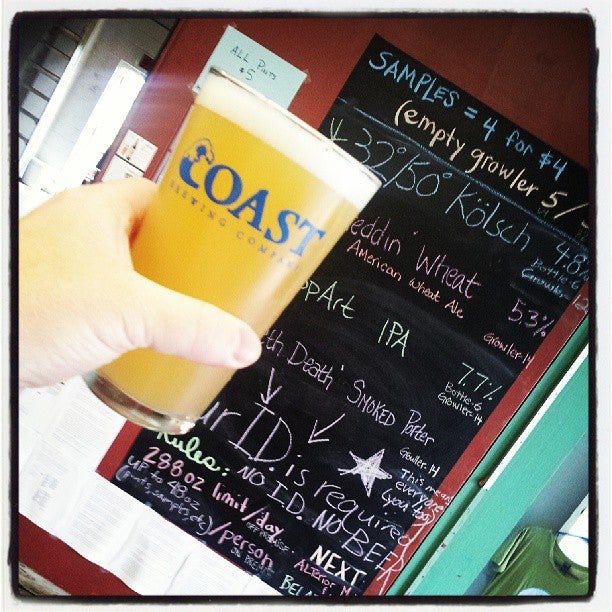 ALL Pints
$5
COAST
BREWING COMPANY
SAMPLES = 4 for $4
(empty growler 5/
32°/50° Kölsch 4.8%
Bottle-6
Growler-
eddin' Wheat 5.3%
American Wheat Ale
Growler-14
opArt IPA 7.7%
Bottle-6
Growler-14
th Death' SMOKED Porter
Growler-14
ur ID. is required
This means
everyone
(you too)
Rules: NO I.D. NO BEER
288oz limit/day
up to 48oz
(pints, samples, etc)/person
NEXT